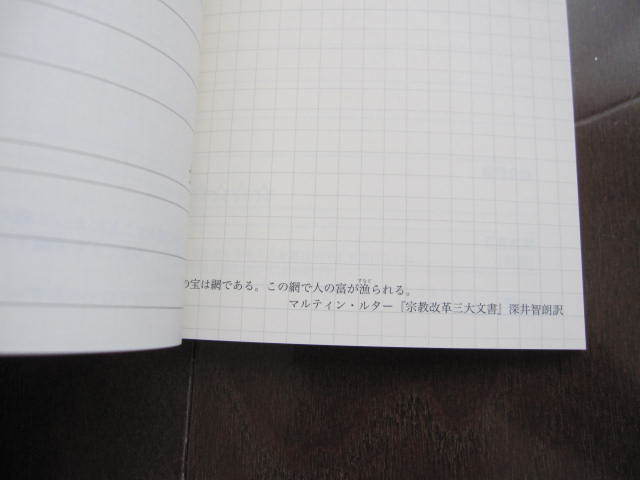 の宝は網である。この網で人の富が漁られる。
マルティン・ルター『宗教改革三大文書』深井智朗訳